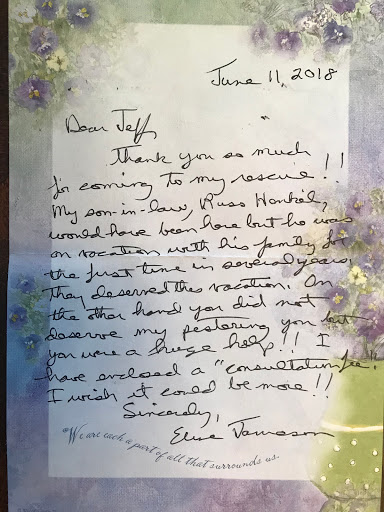 June 11, 2018
Dear Jeff,
Thank you so much
for coming to my rescue!!
My son-in-law, Russ Henkel,
would have been here but he was
on vacation with his family for
the first time in several years.
They deserved this vacation. On
the other hand you did not
deserve my pestering you but
you were a huge help!! I
have enclosed a "consultation fee."
I wish it could be more!!
Sincerely,
Elise Jameson
"We are each a part of all that surrounds us.